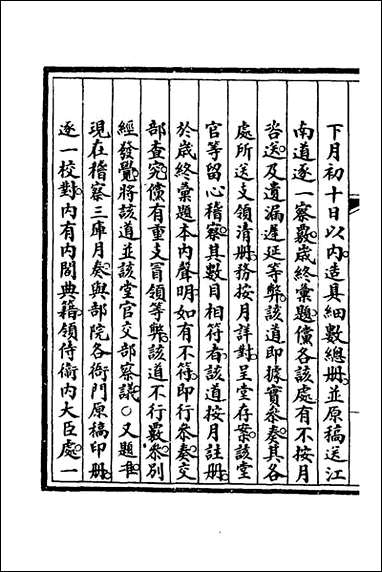 下月初十日以內造具細數總冊並原稿送江
南道逐一察覈歲終彙題儻各該處有不按月
咨送及遺漏遲延等弊該道即據實參奏其各
處所送支領清冊務按月詳對呈堂存案該堂
官等留心稽察其數目相符者該道按月註冊
於歲終彙題本內聲明如有不符即行參奏交
部查究儻有重支冒領等弊該道不行覈參別
經發覺將該道並該堂官交部察議○又題準
現在稽察三庫月奏與部院各衙門原稿印冊
逐一校對內有內閣典籍領侍衞內大臣處一